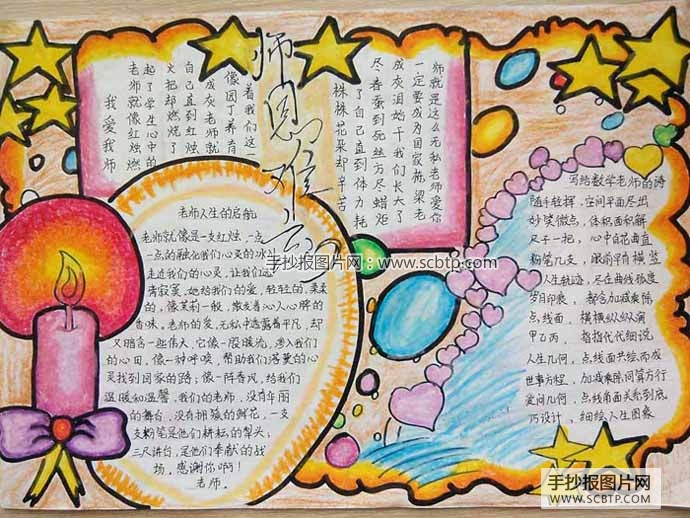 师恩难忘
我爱我师
老师就像红烛燃
起了学生心中的
火把却燃烧了
自己直到红烛
成灰老师就
像园丁养育
着我们这一
株株花朵却辛苦
了自己直到体力耗
尽春蚕到死丝方尽蜡炬
成灰泪始干我们长大了
一定要成为国家栋梁老
师就是这么无私老师爱你
老师人生的启航
老师就像是一支红烛,一点
一点的融化我们心灵的冰
走进我们的心灵,让我们远
离寂寞。她给我们的爱,轻轻的,柔柔
的,像茉莉一般,散发着沁人心脾的
香味。老师的爱,无私中透露着平凡,却
又暗含一些伟大,它像一股暖流,渗入我们
的心田,像一种呼唤,帮助我们落寞的心
灵找到回家的路;像一阵春风,给我们
温暖和温馨,我们的老师,没有华丽
的舞台,没有拥簇的鲜花,一支
支粉笔是他们耕耘的犁头;
三尺讲台,是他们奉献的战
场。感谢你啊!
老师。
写给数学老师的诗
随手轻挥,空间平面尽出
妙笑微点,体积面积解
尺子一把,心中自花曲直
粉笔几支,眼前平有横竖
人生轨迹,尽在曲线弧度
岁月印痕,都含加减乘除
点,线面,横横纵纵演
甲乙丙,指指代代细说
人生几何,点线面共绘而成
世事方程,加减乘除同算方行
爱问几何,点线角面关系到底
巧设计、细绘人生图象
手抄报图片网:www.scbtp.com
手抄报图片网
WWW.SCBTP.COM